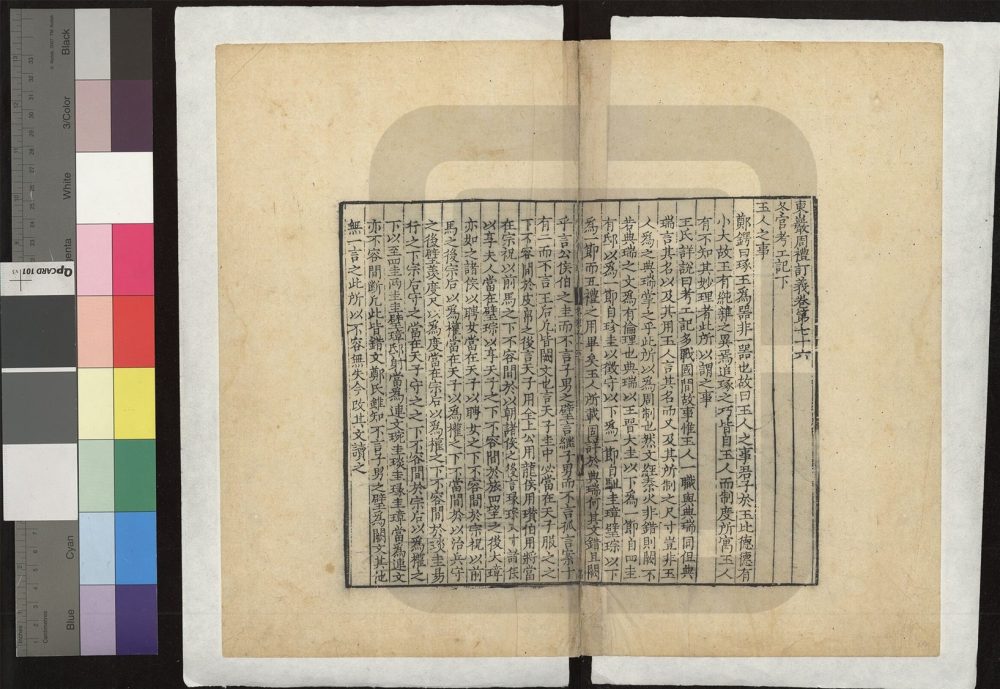 東巖周禮訂義卷第七十六
冬官考工記下
玉人之事
鄭鍔曰琢玉為器非一器也故曰玉人之事君子於玉比德德有
小大故玉有純雜之異焉追琢之巧皆自玉人而制度所寓玉人
有不知其妙理者此所以謂之事
王氏詳說曰考工記多戰國間故事惟玉人一職與典瑞同但典
瑞言其名以及其用玉人言其名而又及其所制之尺寸豈非玉
人為之典瑞掌之乎此所以為周制也然文經秦火非錯則闕不
若典瑞之文為有倫理也典瑞以王晉大圭以下為一節自四圭
有邸以為一節自珍圭以徵守以下為一節自駔圭璋璧琮以下
為一節而五禮之用畢矣玉人所載固詳於典瑞何其文錯且闕
乎言公侯伯之圭而不言子男之璧言繼子男而不言孤言案十
有二而不言王后凡皆闕文也言天子圭中必當在天子服之之
下不容間於皮帛之後言天子用全上公用龍侯用瓚伯用將當
在宗祝以前馬之下不容間於以朝諸侯之後言瑑琮八寸諸侯
以享夫人當在璧琮以享天子之下不容間於旅四望之後大璋
亦如之諸侯以聘女當在天子以聘女之下不容間於宗祝以前
馬之後宗后以為權當在天子以為權之下不當間於以治兵守
之後璧羨度尺以為度當在宗后以為權之下不容間於琰圭易
行之下宗后守之當在天子守之之下不容間於宗后以為權之
下以至四圭兩圭圭璧璋邸射當為連文琬圭琰圭瑑圭璋當為連文
亦不容間斷凡此皆錯文鄭氏雖知不言子男之璧為闕文其他
無一言之此所以不容無失今改其文讀之
QpCARD 101
Black
3/Color
White
Magenta
Cyan
Blue
Inches
Centimetres